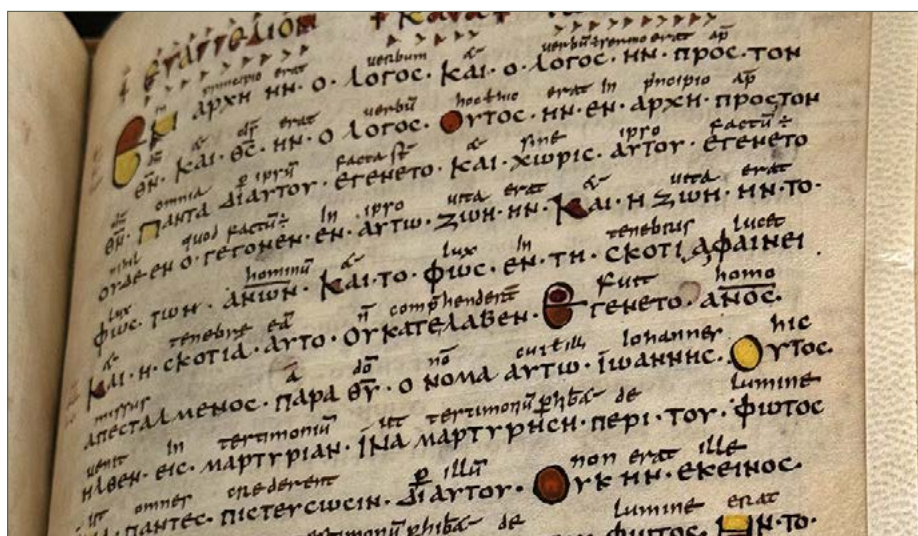 † ЄΥΑΓΓЄΛΙΟΝ † ΚΑΤΑ
in principio erat uerbum & erat ap̄
ЄΝ ΑΡΧΗ ΗΝ · Ο · ΛΟΓΟC · ΚΑΙ · Ο · ΛΟΓΟC · ΗΝ · ΠΡΟC · ΤΟΝ
d̄m̄ & d̄s̄ erat uerbū hoc erat in principio ap̄
Θ̄Ν̄ · ΚΑΙ · Θ̄C̄ · ΗΝ · Ο ΛΟΓΟC · ΟΥΤΟC · ΗΝ · ЄΝ · ΑΡΧΗ · ΠΡΟC ΤΟΝ
d̄m̄ omnia p̄ ipsū facta s̄t̄ & sine ipso factū ÷
Θ̄Ν̄ · ΠΑΝΤΑ ΔΙΑΥΤΟΥ · ЄΓЄΝЄΤΟ · ΚΑΙ · ΧΩΡΙC · ΑΥΤΟΥ · ЄΓЄΝЄΤΟ
nihil quod factū ÷ in ipso uita erat & uita erat
ΟΥΔЄ ЄΝ Ο · ΓЄΓΟΝЄΝ · ЄΝ · ΑΥΤΩ · ΖΩΗ · ΗΝ · ΚΑΙ · Η ΖΩΗ · ΗΝ · ΤΟ ·
lux hominū & lux in tenebris lucet
ΦΩC · ΤΩΝ · ΑΝ̄Ω̄Ν · ΚΑΙ · ΤΟ · ΦΩC · ЄΝ · ΤΗ · CΚΟΤΙΑ ΦΑΙΝЄΙ
& tenebre eā n̄ comp̄henderūt fuit homo
ΚΑΙ · Η · CΚΟΤΙΑ · ΑΥΤΟ · ΟΥ ΚΑΤЄΛΑΒЄΝ · ЄΓЄΝЄΤΟ · ΑΝ̄Ο̄C ·
missus a d̄o nō cui illi iohannes hic
ΑΠЄCΤΑΛΜЄΝΟC · ΠΑΡΑ Θ̄Ῡ · Ο ΝΟΜΑ ΑΥΤΩ · ΙΩΑΝΝΗC · ΟΥΤΟC ·
uenit in testimoniū ut testimoniū p̄hib& de lumine
ΗΛΘЄΝ · ЄΙC · ΜΑΡΤΥΡΙΑΝ · ΙΝΑ ΜΑΡΤΥΡΗCΗ · ΠЄΡΙ · ΤΟΥ · ΦΩΤΟC
ut omnes crederent p̄ illū non erat ille
ΠΑΝΤЄC · ΠΙCΤЄΥCΩCΙΝ · ΔΙΑΥΤΟΥ · ΟΥΚ ΗΝ · ЄΚЄΙΝΟC ·
testimoniū p̄hib& de lumine erat
ΦΩΤΟC · ΗΝ · ΤΟ ·